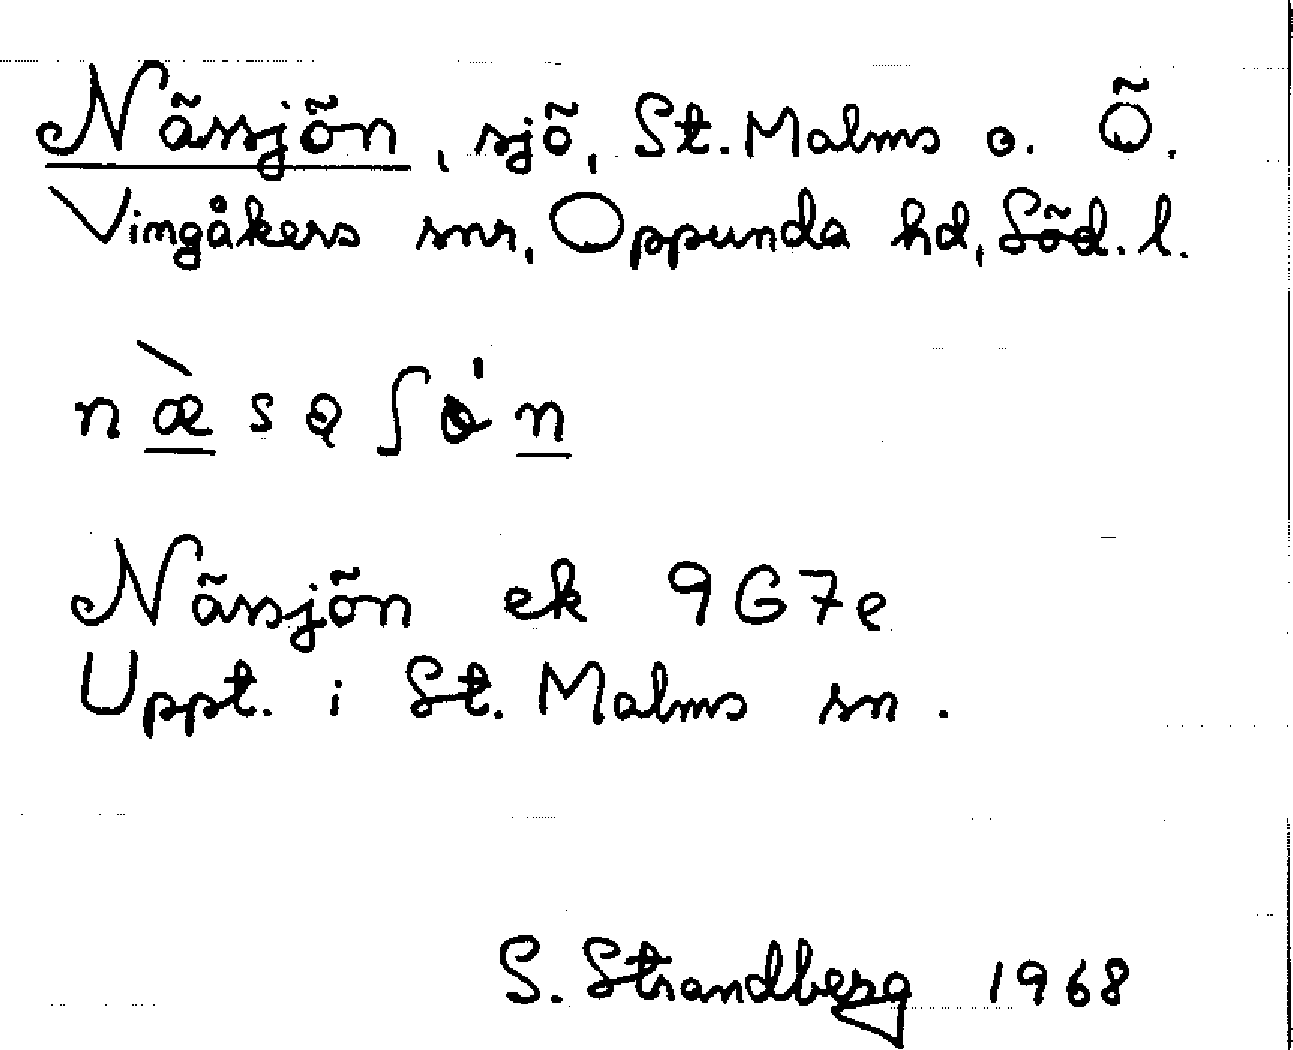 Nässjön, sjö, St. Malms o. Ö.
Vingåkers snr, Oppunda hd, Söd. l.
Nässjön ek 9G7e
Uppt. i St. Malms sn.
S. Strandberg 1968